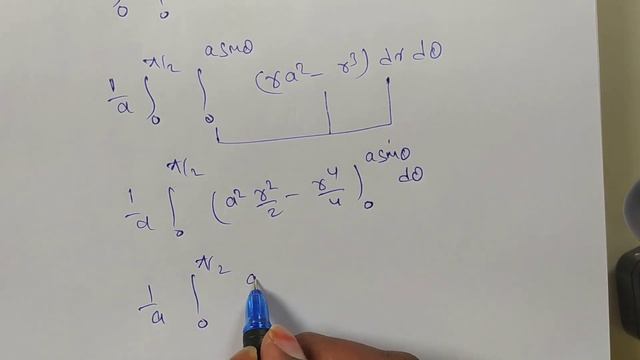 0 0
1/a ∫₀^{π/2} ∫₀^{a sinθ} (ra² − r³) dr dθ
1/a ∫₀^{π/2} (a² r²/2 − r⁴/4)₀^{a sinθ} dθ
1/a ∫₀^{π/2} a